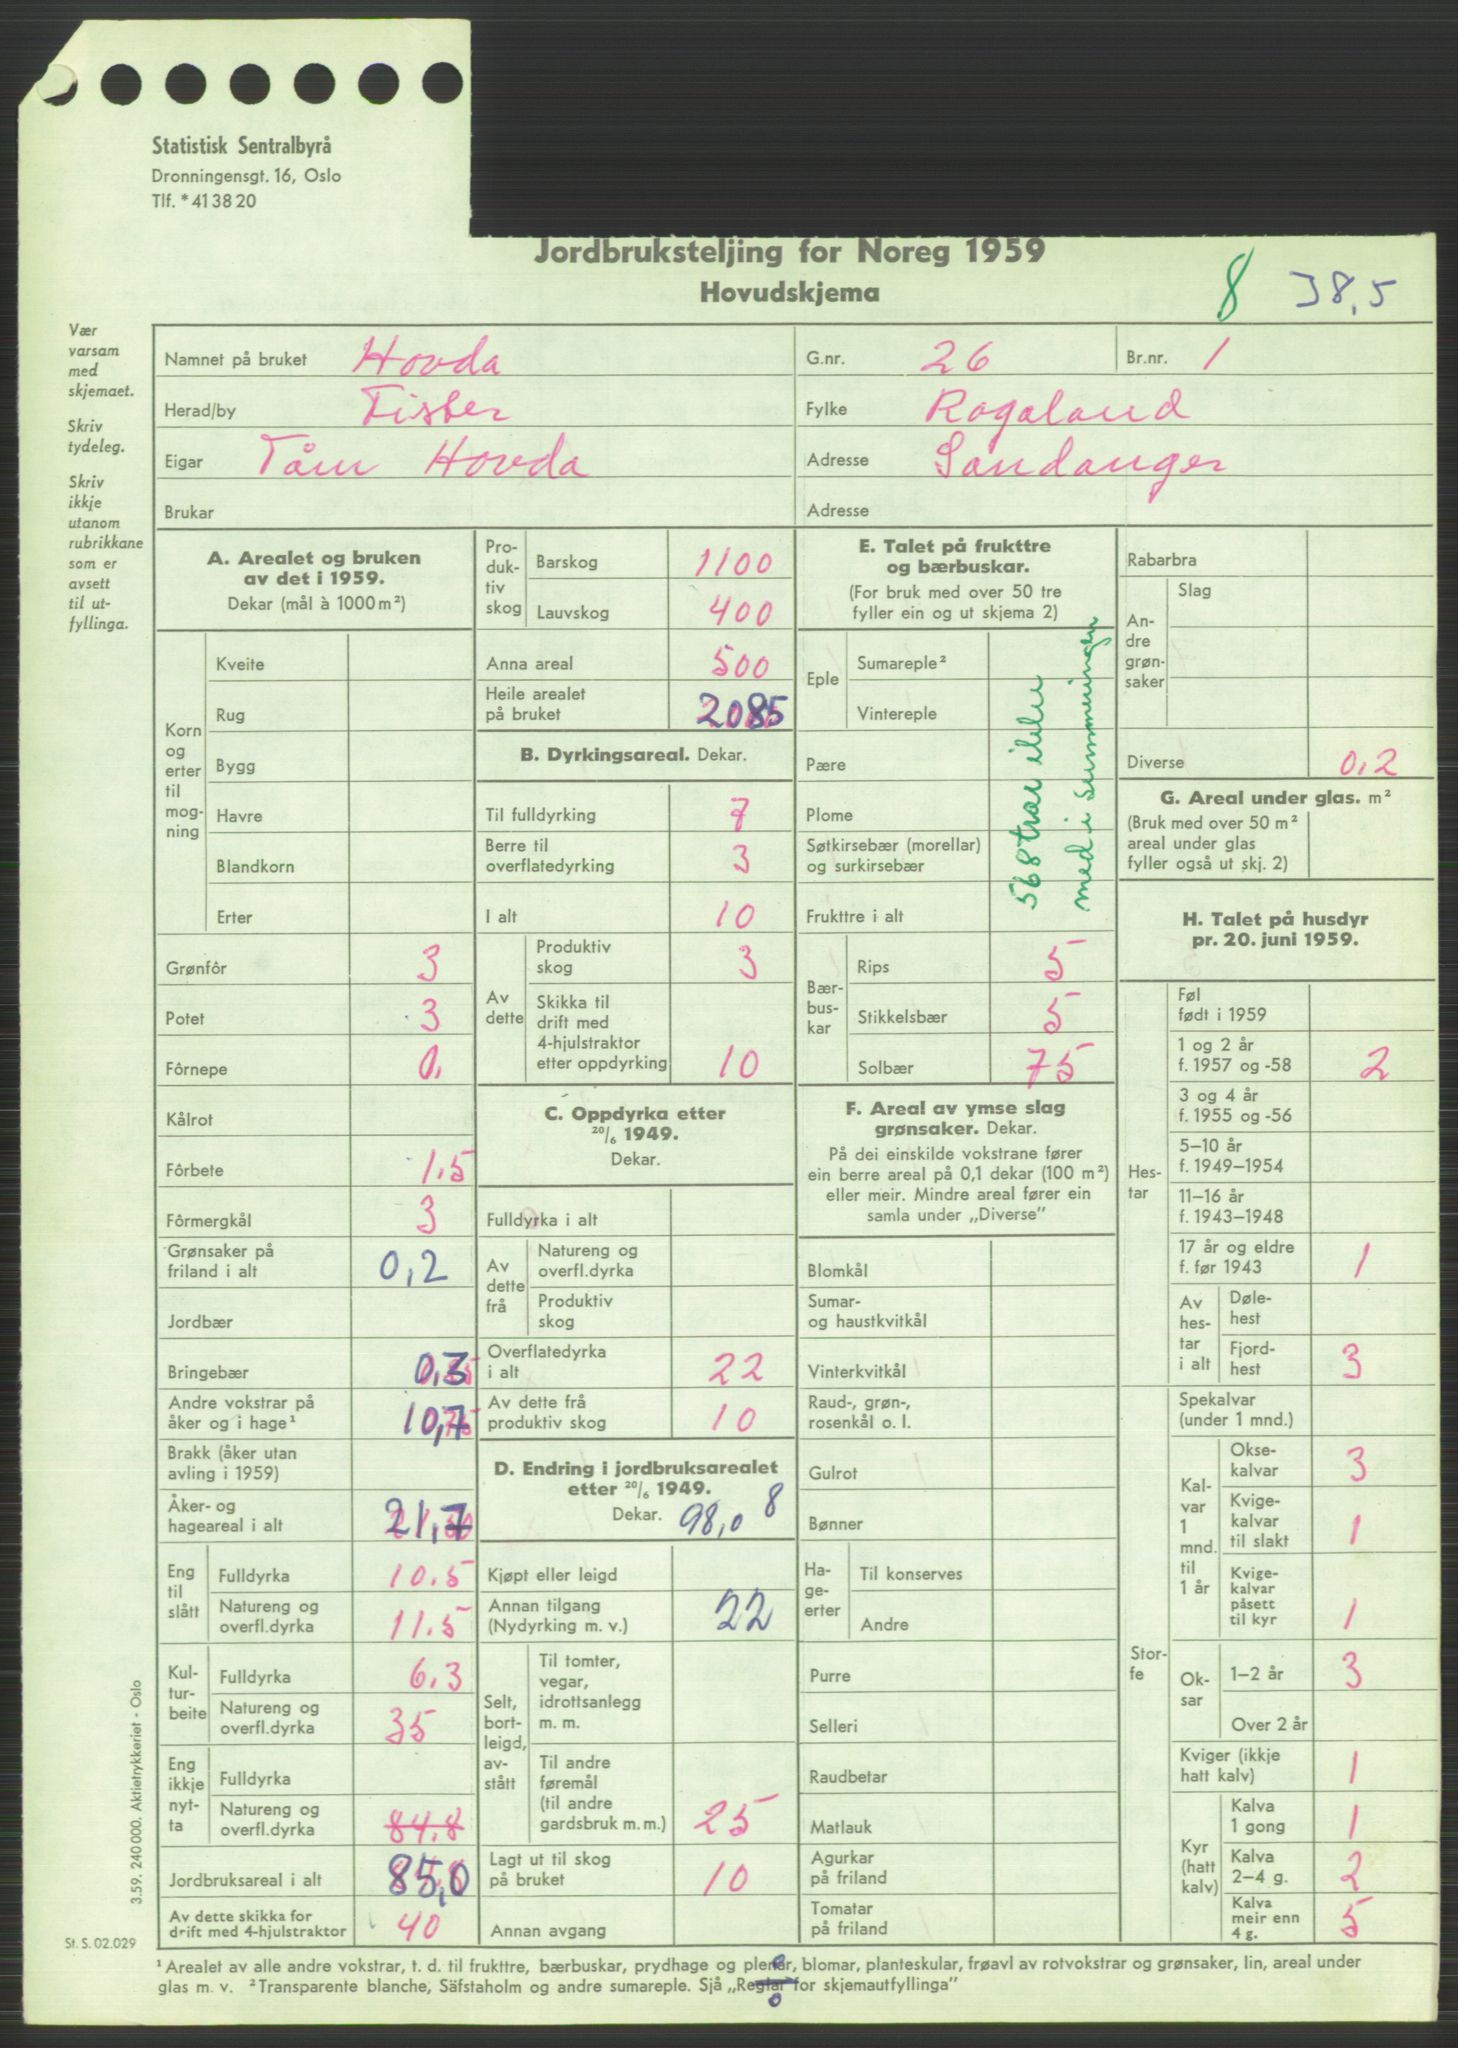 Statistisk Sentralbyrå
Dronningensgt. 16, Oslo
Tlf. * 41 38 20
Jordbruksteljing for Noreg 1959
Hovudskjema
8 38,5
Vær
varsam
med
skjemaet.
Skriv
tydeleg.
Skriv
ikkje
utanom
rubrikkane
som er
avsett
til ut-
fyllinga.
Namnet på bruket Hovda G.nr. 26 Br.nr. 1
Herad/by Fister Fylke Rogaland
Eigar Hovda Adresse Sandanger
Brukar Adresse
A. Arealet og bruken
av det i 1959.
Dekar (mål à 1000 m²)
Korn
og
erter
til
mog-
ning
Kveite
Rug
Bygg
Havre
Blandkorn
Erter
Grønfôr 3
Potet 3
Fôrnepe 0,
Kålrot
Fôrbete 1.5
Fôrmergkål 3
Grønsaker på
friland i alt 0,2
Jordbær
Bringebær 0,3
Andre vokstrar på
åker og i hage¹ 10,7
Brakk (åker utan
avling i 1959)
Åker- og
hageareal i alt 21,7
Eng
til
slått
Fulldyrka 10.5
Natureng og
overfl.dyrka 11.5
Kul-
tur-
beite
Fulldyrka 6,3
Natureng og
overfl.dyrka 35
Eng
ikkje
nyt-
ta
Fulldyrka
Natureng og
overfl.dyrka 84,8
Jordbruksareal i alt 85,0
Av dette skikka for
drift med 4-hjulstraktor 40
Pro-
duk-
tiv
skog
Barskog 1100
Lauvskog 400
Anna areal 500
Heile arealet
på bruket 2085
B. Dyrkingsareal. Dekar.
Til fulldyrking 7
Berre til
overflatedyrking 3
I alt 10
Av
dette
Produktiv
skog 3
Skikka til
drift med
4-hjulstraktor
etter oppdyrking 10
C. Oppdyrka etter
20/6 1949.
Dekar.
Fulldyrka i alt
Av
dette
frå
Natureng og
overfl.dyrka
Produktiv
skog
Overflatedyrka
i alt 22
Av dette frå
produktiv skog 10
D. Endring i jordbruksarealet
etter 20/6 1949.
Dekar. 98,0 8
Kjøpt eller leigd
Annan tilgang
(Nydyrking m. v.) 22
Selt,
bort-
leigd,
av-
stått
Til tomter,
vegar,
idrottsanlegg
m. m.
Til andre
føremål
(til andre
gardsbruk m. m.) 25
Lagt ut til skog
på bruket 10
Annan avgang
E. Talet på frukttre
og bærbuskar.
(For bruk med over 50 tre
fyller ein og ut skjema 2)
Eple
Sumareple²
Vintereple
Pære
Plome
Søtkirsebær (morellar)
og surkirsebær
Frukttre i alt
568 trær ikke
med i summeringen
Bær-
bus-
kar
Rips 5
Stikkelsbær 5
Solbær 75
F. Areal av ymse slag
grønsaker. Dekar.
På dei einskilde vokstrane fører
ein berre areal på 0,1 dekar (100 m²)
eller meir. Mindre areal fører ein
samla under „Diverse”
Blomkål
Sumar-
og haustkvitkål
Vinterkvitkål
Raud-, grøn-,
rosenkål o. l.
Gulrot
Bønner
Ha-
ge-
erter
Til konserves
Andre
Purre
Selleri
Raudbetar
Matlauk
Agurkar
på friland
Tomatar
på friland
Rabarbra
An-
dre
grøn-
saker
Slag
Diverse 0,2
G. Areal under glas. m²
(Bruk med over 50 m²
areal under glas
fyller også ut skj. 2)
H. Talet på husdyr
pr. 20. juni 1959.
Hes-
tar
Føl
født i 1959
1 og 2 år
f. 1957 og -58 2
3 og 4 år
f. 1955 og -56
5–10 år
f. 1949–1954
11–16 år
f. 1943–1948
17 år og eldre
f. før 1943 1
Av
hes-
tar
i alt
Døle-
hest
Fjord-
hest 3
Stor-
fe
Spekalvar
(under 1 mnd.)
Kal-
var
1
mnd.
til
1 år
Okse-
kalvar 3
Kvige-
kalvar
til slakt 1
Kvige-
kalvar
påsett
til kyr 1
Ok-
sar
1–2 år 3
Over 2 år
Kviger (ikkje
hatt kalv) 1
Kyr
(hatt
kalv)
Kalva
1 gong 1
Kalva
2–4 g. 2
Kalva
meir enn
4 g. 5
3.59. 240 000. Aktietrykkeriet - Oslo
St. S. 02.029
¹ Arealet av alle andre vokstrar, t. d. til frukttre, bærbuskar, prydhage og plenar, blomar, planteskular, frøavl av rotvokstrar og grønsaker, lin, areal under
glas m. v. ² Transparente blanche, Säfstaholm og andre sumareple. Sjå „Reglar for skjemautfyllinga”